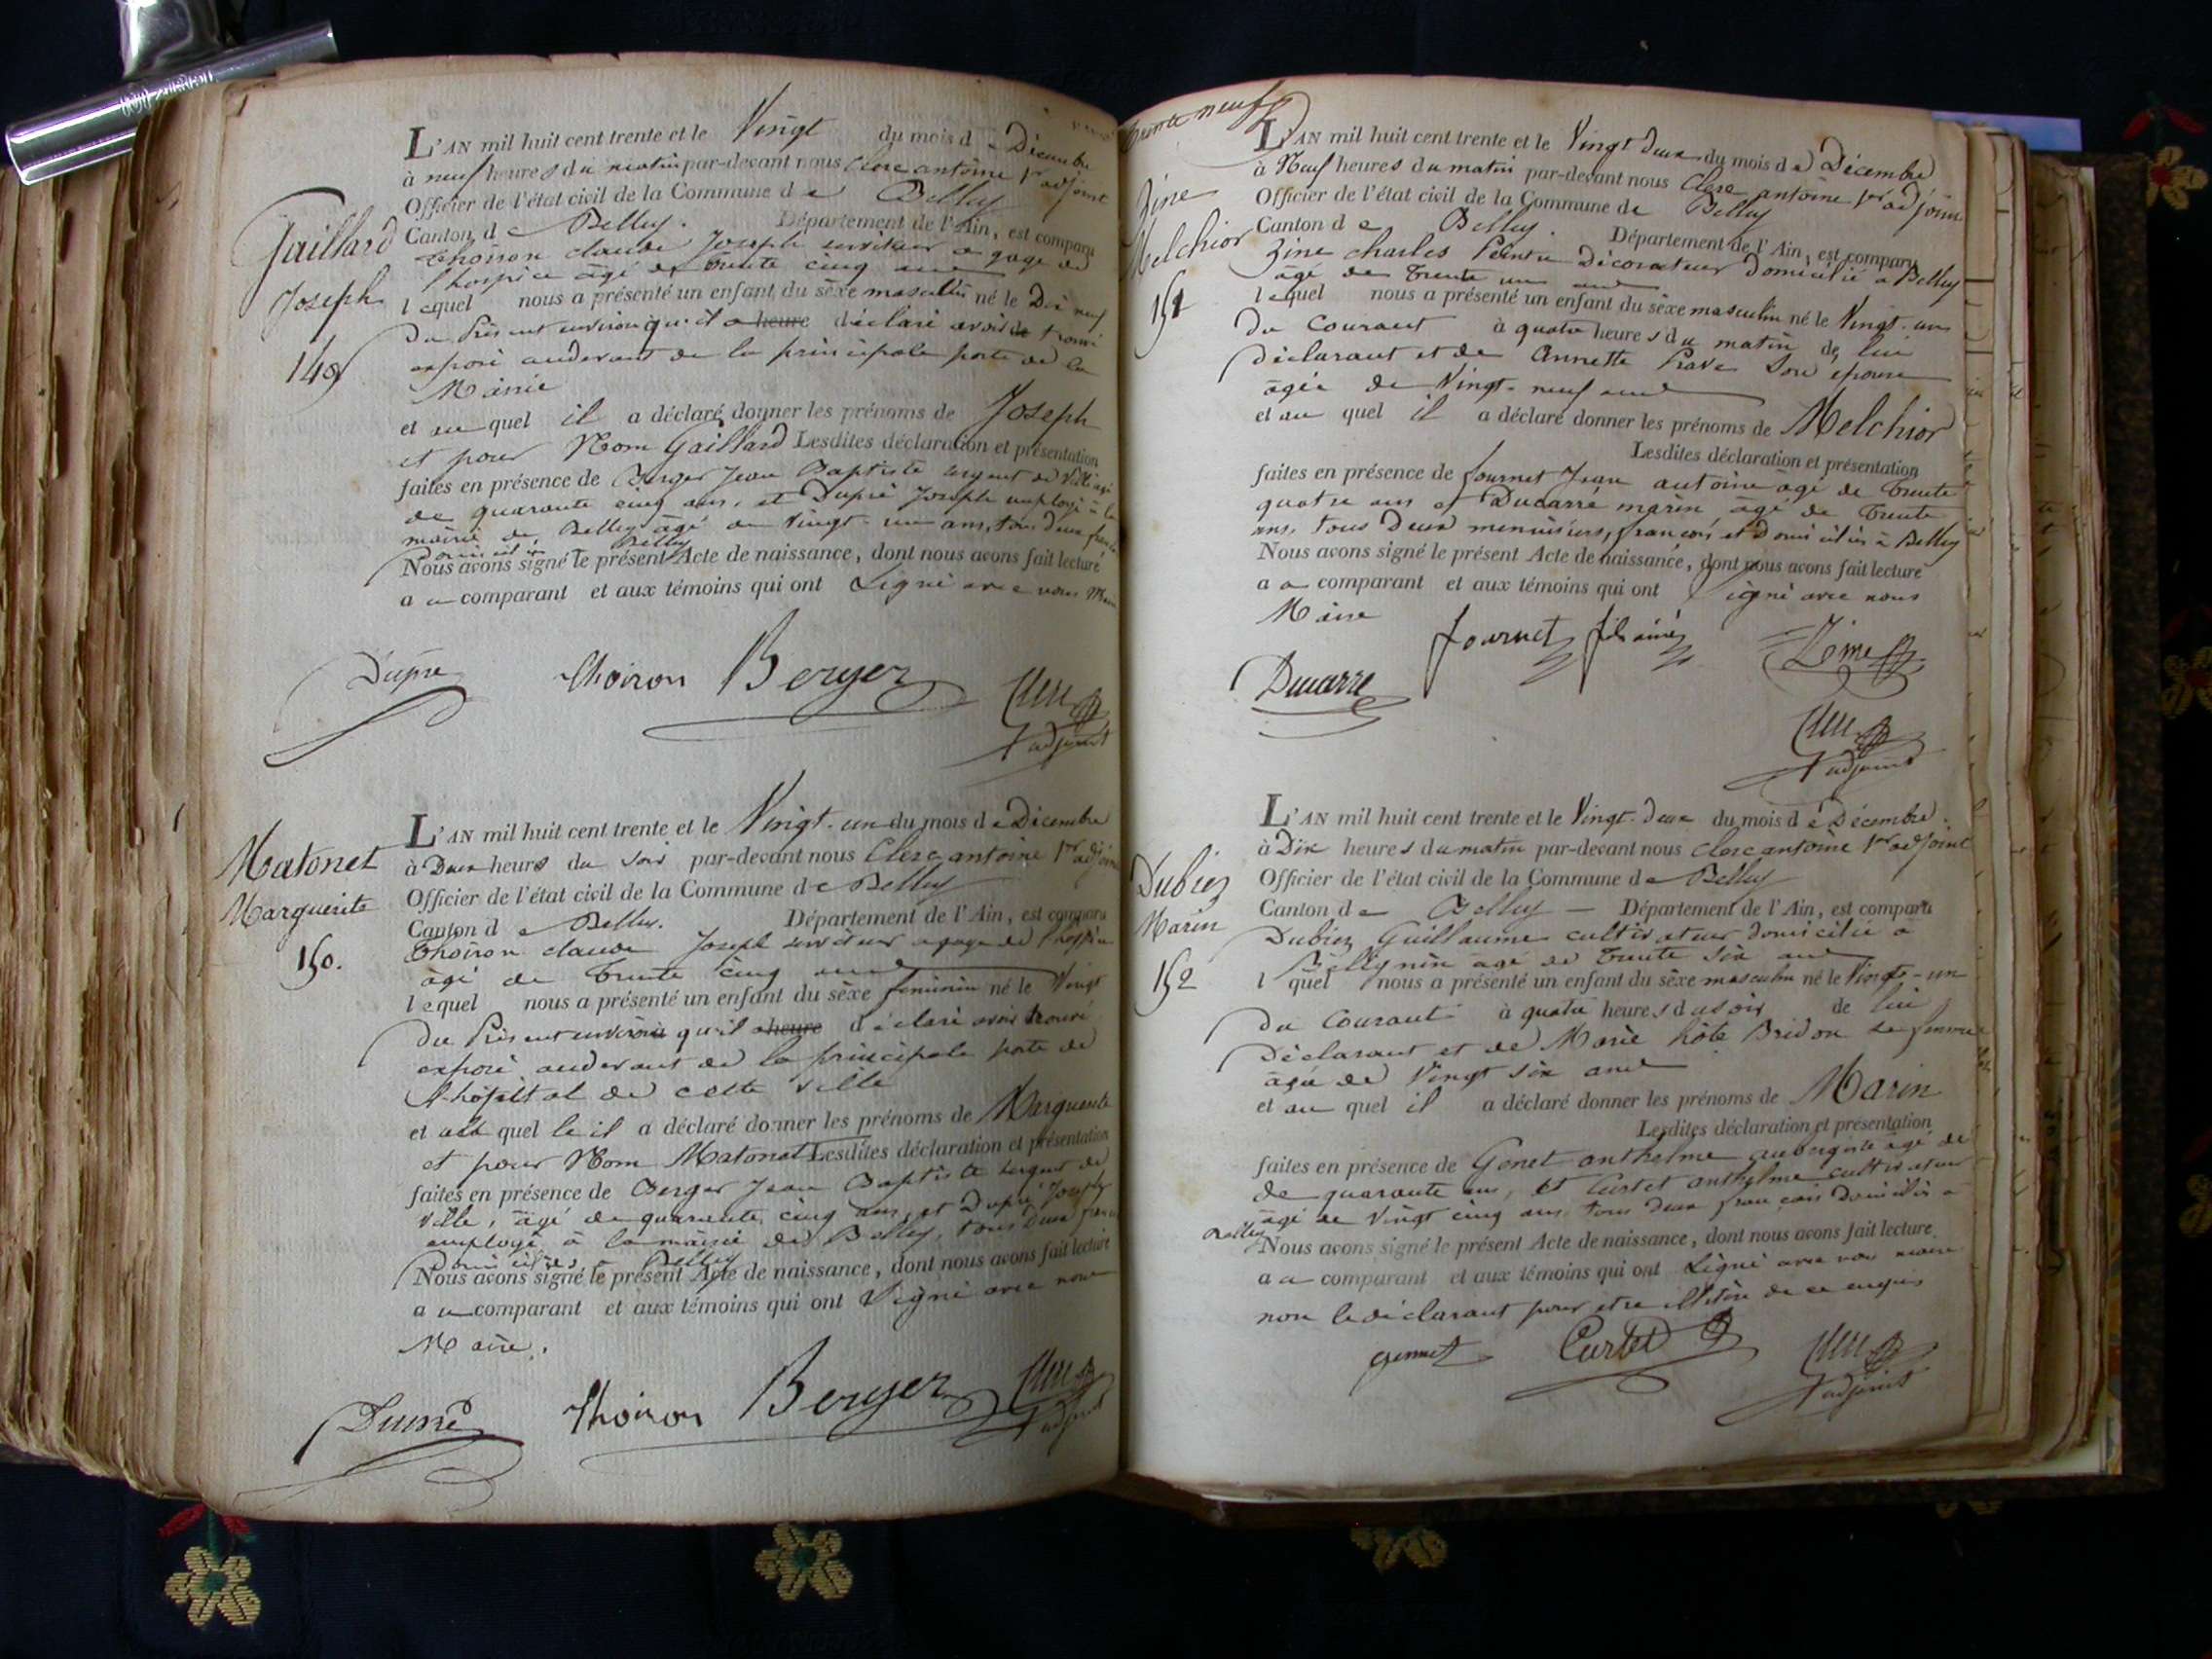 Gaillard
Joseph
149
L'AN mil huit cent trente et le Vingt du mois de Décembre
à neuf heures du matin par-devant nous Clerc antoine 1er adjoint
Officier de l'état civil de la Commune de Belley
Canton de Belley. Département de l'Ain, est comparu
Thoiron claude Joseph serviteur a gage de
l'hospice âgé de trente cinq ans
lequel nous a présenté un enfant du sèxe masculin né le Dix neuf
du Présent environ qu'il a heure déclaré avoir trouvé
exposé audevant de la principale porte de la
Mairie
et au quel il a déclaré donner les prénoms de Joseph
et pour Nom Gaillard Lesdites déclaration et présentation
faites en présence de Berger Jean Baptiste sergent de Ville âgé
de quarante cinq ans, et Dupré Joseph employé à la
mairie de Belley âgé de vingt-un ans, tous deux français
Domiciliés à Belley
Nous avons signé le présent Acte de naissance, dont nous avons fait lecture
a u comparant et aux témoins qui ont signé avec nous Maire
Dupre Thoiron Berger Clerc
1er adjoint
Matonet
Marguerite
150.
L'AN mil huit cent trente et le Vingt-un du mois de Décembre
à Deux heures du soir par-devant nous Clerc antoine 1er adjoint
Officier de l'état civil de la Commune de Belley
Canton de Belley. Département de l'Ain, est comparu
Thoiron claude Joseph serviteur a gage de l'hospice
âgé de trente cinq ans
lequel nous a présenté un enfant du sèxe feminin né le Vingt
du Présent environ qu'il a heure déclaré avoir trouvé
exposé audevant de la principale porte de
l'hôpital de cette ville
et a quel le il a déclaré donner les prénoms de Marguerite
et pour Nom Matonet Lesdites déclaration et présentation
faites en présence de Berger Jean Baptiste sergent de
ville, âgé de quarante cinq ans, et Dupré Joseph
employé à la mairie de Belley, tous deux français
Domiciliés à Belley
Nous avons signé le présent Acte de naissance, dont nous avons fait lecture
a u comparant et aux témoins qui ont signé avec nous
Maire.
Dupré Thoiron Berger Clerc
1er adjoint
trente neuf
Zine
Melchior
151
L'AN mil huit cent trente et le Vingt deux du mois de Décembre
à Neuf heures du matin par-devant nous Clerc antoine 1er adjoint
Officier de l'état civil de la Commune de Belley
Canton de Belley. Département de l'Ain, est comparu
Zine charles Peintre Décorateur domicilié a Belley
âgé de trente un ans
lequel nous a présenté un enfant du sèxe masculin né le Vingt-un
du Courant à quatre heures du matin de lui
déclarant et de Annette Prave son épouse
âgée de Vingt-neuf ans
et au quel il a déclaré donner les prénoms de Melchior
Lesdites déclaration et présentation
faites en présence de fournet Jean antoine âgé de trente
quatre ans et Ducarré marin âgé de trente
ans, tous deux menuisiers, français et domiciliés à Belley
Nous avons signé le présent Acte de naissance, dont nous avons fait lecture
a u comparant et aux témoins qui ont signé avec nous
Maire
fournet fils ainé Zine
Ducarre
Clerc
1er adjoint
Dubiez
Marin
152
L'AN mil huit cent trente et le Vingt-deux du mois de Décembre
à Dix heures du matin par-devant nous clerc antoine 1er adjoint
Officier de l'état civil de la Commune de Belley
Canton de Belley — Département de l'Ain, est comparu
Dubiez Guillaume cultivateur domicilié a
Billignin âgé de trente six ans
l quel nous a présenté un enfant du sèxe masculin né le Vingt-un
du Courant à quatre heures du soir de lui
déclarant et de Marie hôte Bridon sa femme
âgée de Vingt six ans
et au quel il a déclaré donner les prénoms de Marin
Lesdites déclaration et présentation
faites en présence de Genet anthelme aubergiste âgé de
de quarante ans, et Curtet anthelme cultivateur
âgé de vingt cinq ans tous deux français domiciliés a
Belley
Nous avons signé le présent Acte de naissance, dont nous avons fait lecture
a u comparant et aux témoins qui ont signé avec nous maire
non le déclarant pour etre illitéré de ce enquis
gennet Curtet Clerc
1er adjoint